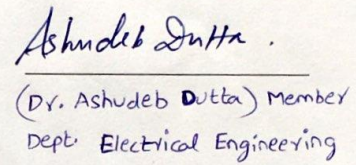 Ashudeb Dutta.
(Dr. Ashudeb Dutta) Member
Dept. Electrical Engineering